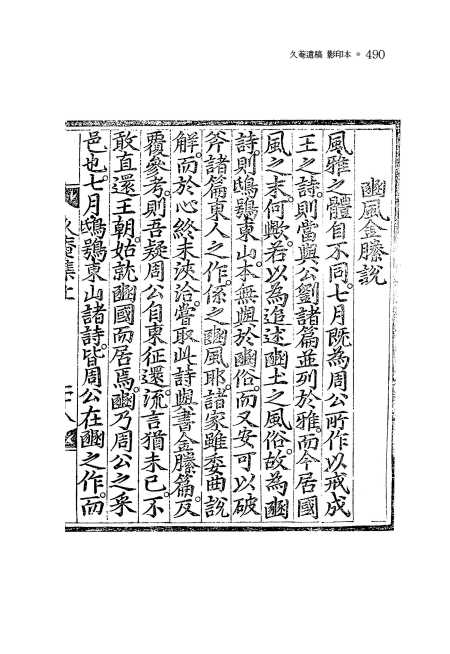 久菴遺稿 影印本 • 490
豳風金縢說
風雅之體自不同。七月既為周公所作以戒成
王之詩。則當與公劉諸篇並列於雅。而今居國
風之末。何歟。若以為追述豳土之風俗。故為豳
詩。則鴟鴞東山。本無與於豳俗。而又安可以破
斧諸篇東人之作。係之豳風耶。諸家雖委曲說
解。而於心終未浹洽。嘗取此詩與書金縢篇。反
覆參考。則吾疑周公自東征還。流言猶未已。不
敢直還王朝。姑就豳國而居焉。豳乃周公之采
邑也。七月鴟鴞東山諸詩。皆周公在豳之作。而